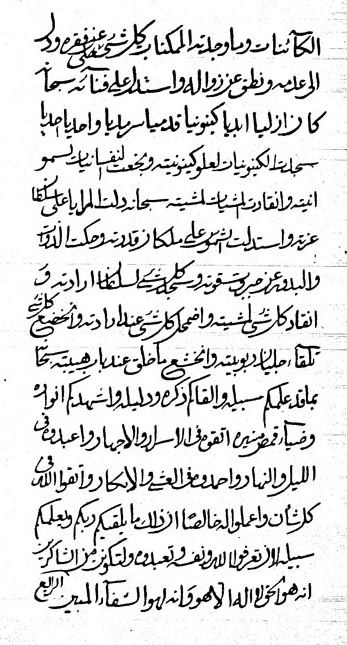 الكائنات وما وجدته الممكنات كلشئ عن فقره ودل
الى عدمه ونطق عن زواله واستدل على فنائه سبحانه
كان ازليا ابديا كينونيا قدميا سرمديا واحديا احديا
سجدت الكينونيات لعلو كينونيته وبخعت النفسانيات لسمو
انيته وانقادت المشيات لمشيته سبحانه دلت المرايا على سلطان
عزته واستدلت الشموس على مليكان قدرته وحكت الذوات
والبدوية عن جبروت قوته وسجد كلشئ لسلطان ارادته و
انقاد كلشئ لمشيته واضمحل كلشئ عند ارادته وانخضع كلشئ
تلقاء جلال ربوبيته وانخشع ما خلق عند باب هيبته سبحانه
بما قد علمكم سبيله والقاكم ذكره ودليله واشهدكم انواره
وضياء اتقوه في الاسرار والاجهار واعبدوه في
الليل والنهار واحمدوه في العشي والابكار واتقوا الله في
كل شان واعملوا له خالصا اذ ذلك ما يلقيكم ربكم ويعلمكم
سبيله لان تعرفوا الله وتعبدوه ولتكونن من الشاكرين
انه هو الحق لا اله الا هو وانه لهو الشفاء المبين الرابع